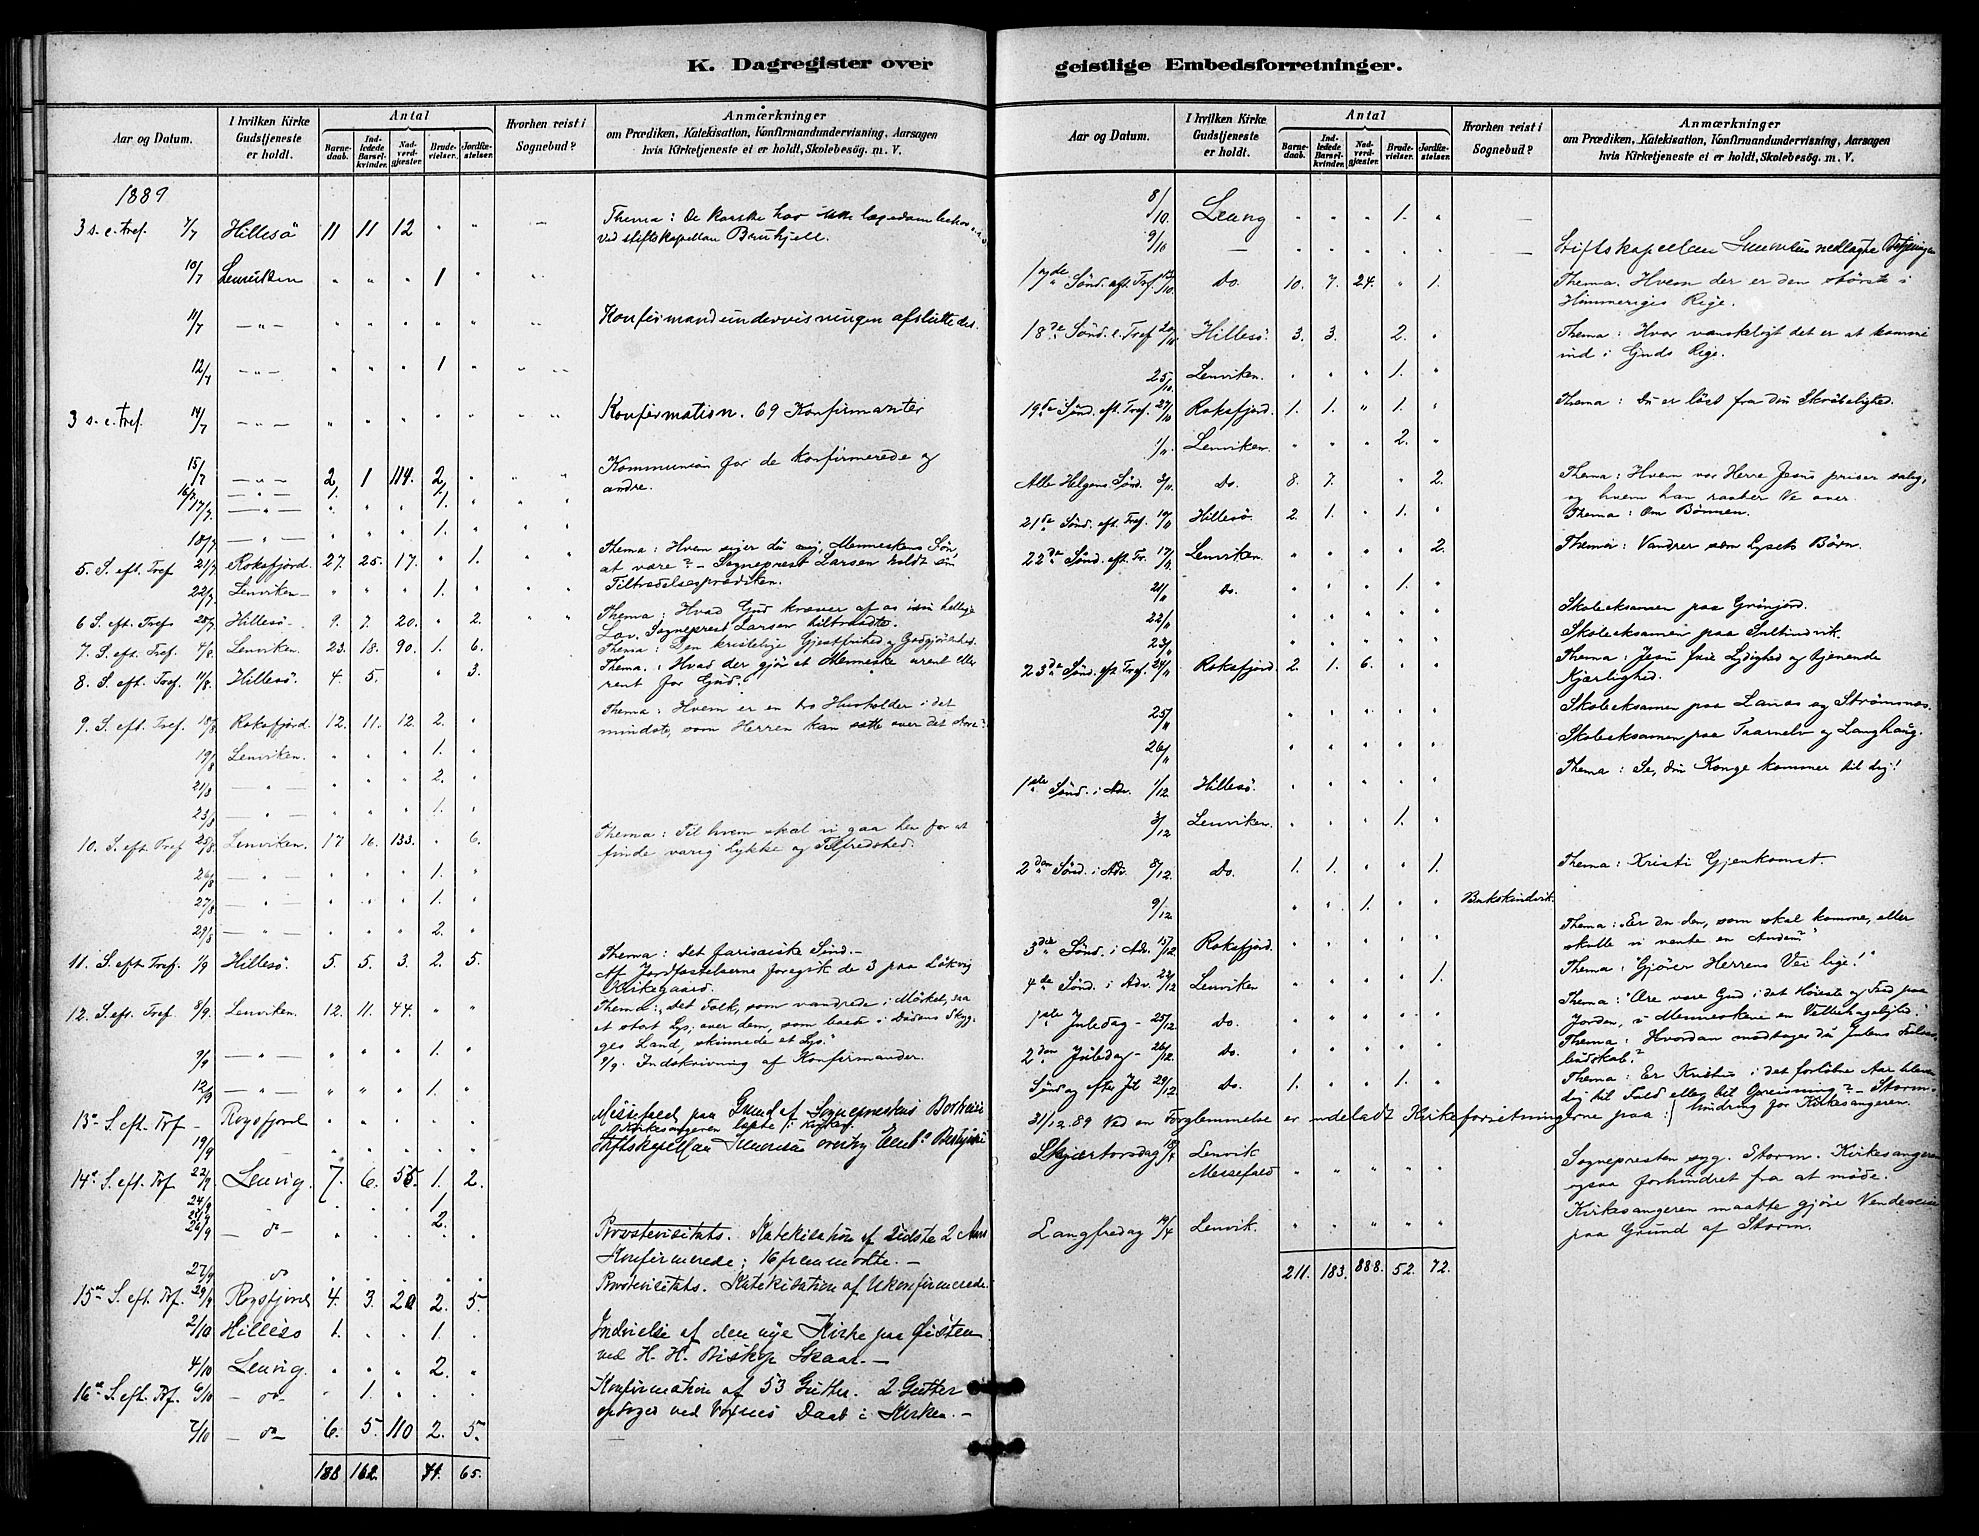 K. Dagregister over
Aar og Datum.
I hvilken Kirke Gudstjeneste er holdt.
Antal
Barnedaab.
Indledede Barselkvinder.
Nadverdgjæster.
Brudevielser.
Jordfæstelser.
Hvorhen reist i Sognebud?
Anmærkninger
om Prædiken, Katekisation, Konfirmandundervisning, Aarsagen
hvis Kirketjeneste ei er holdt, Skolebesög. m. V.
1889
3 s. e. Tref. 7/7 Hillesö 11 11 12 " " Thema: De karske har ikke lægedom behov
ved stiftskapellan Bruhjell.
10/7 Lenviken " " " 1 "
11/7 — " — " " " " " Konfirmandundervisningen afsluttedes.
12/7 — " — " " " 1 "
3 s. e. Tref. 14/7 — " — " " " " " Konfirmation. 69 Konfirmanter
15/7 — " — 2 1 114. 2 " Kommunion for de konfirmerede og
andre.
16/7 — " — 1. " " 1. "
17/7 — " — " " " "
18/7 — " — " " " 1. "
5. S. eft. Tref 21/7 Roksfjord. 27. 25. 17. " 1. Thema: Hvem siger du mig, Menneskens Sön,
at være? — Sogneprest Larsen holdt sin
Tiltrædelsesprædiken.
22/7. Lenviken — " " " 1. "
6 S. eft. Tref 28/7 Hillesö. 9. 7. 20. " 2. Thema: Hvad Gud kræver af os i sin hellige
Lov. Sogneprest Larsen tiltraadte.
7. S. eft. Tref. 4/8. Lenviken. 23. 18. 90. 1. 6. Thema: Den kristelige Gjestfrihed og Godgjörenhed.
8. S. eft. Tref. 11/8. Hillesö. 4. 5. " 3. Thema: Hvad der gjör et Menneske urent eller
rent for Gud.
9. S. eft. Tref. 18/8 Roksfjord. 12. 11. 12. 2. " Thema: Hvem er en tro Husholder i det
mindste, som Herren kan sætte over det store?
19/8 Lenviken. " " " 1. "
21/8 — " — " " " 2. "
23/8 — " — " " " 1. "
10. S. eft. Tref 25/8. Lenviken. 17 16. 133. " 6. Thema: Til hvem skal vi gaa hen for at
finde varig Lykke og Tilfredshed.
26/8 — " — " " " 1. "
27/8 — " — " " " 1. "
29/8 — " — " " " 2. "
11. S. eft. Tref. 1/9 Hillesö. 5. 5. 3. 2. 5. Thema: Det farisæiske Sind. —
Af Jordfæstelserne foregik de 3 paa Lökvig
Kirkegaard.
12. S. eft. Tref 8/9. Lenviken. 12. 11. 44. " " Thema: "Det Folk, som vandrede i Mörket, saa
et stort Lys; over dem, som boede i Dödens Skyg-
ges Land, skinnede et Lys."
9/9 — " — " " " 1. " 9/9. Indskrivning af Konfirmander.
12/9 — " — " " " 1. "
13de S. eft. Tref — Rogsfjord Messefald paa Grund af Sogneprestens Bortreise
Kirkesangeren læste i Kirken.
19/9 Stiftskapellan
14de S. eft. Trf 22/9 Lenvig. 7. 6. 55. 1. 2.
24/9 1
25/9
26/9 — do — 2. Provstevisitats. Katekisation af sidste 2 Aars
Konfirmerede; 16 fremmödte. —
27/9 do Provstevisitats. Katekisation af Ukonfirmerede.
15de S. eft. Trf. 29/9 Rogsfjord 4. 3. 20 2. 5.
2/10 Hillesö 1. " " 1. " Indvielse af den nye Kirke paa Gisten
ved H. H. Biskop Skaar. —
4/10 Lenvig. " " " 2. "
16de S. eft. Trf. 6/10 — do — " 1. " " Konfirmation af 53 Gutter. 2 Gutter
optoges ved Voxnes Daab i Kirken. —
7/10 — do — 6. 5. 110 2. 5.
188 162 71. 65.
geistlige Embedsforretninger.
Aar og Datum.
I hvilken Kirke Gudstjeneste er holdt.
Antal
Barnedaab.
Indledede Barselkvinder.
Nadverdgjæster.
Brudevielser.
Jordfæstelser.
Hvorhen reist i Sognebud?
Anmærkninger
om Prædiken, Katekisation, Konfirmandundervisning, Aarsagen
hvis Kirketjeneste ei er holdt, Skolebesög. m. V.
8/10 Lenvg " " " 1. " —
9/10 — " " " " " — Stiftskapellan nedlagte
17de Sönd. eft. Tref. Do. 10. 7. 24. " 1. Thema. Hvem der er den störste i
Himmeriges Rige.
18de Sönd. e. Tref 20/10 Hillesö. 3. 3. 2. " Thema: Hvor vanskeligt det er at komme
ind i Guds Rige.
25/10 Lenviken. " " " 1. "
19de Sönd. eft. Tref. 27/10 Roksfjord. 1. 1. " 1. " Thema: Du er löst fra din Skröbelighed.
1/11. Lenviken. " " " 2. "
Alle Helgens Sönd. 3/11. Do. 8. 7. " 2. Thema: Hvem vor Herre Jesus priser salig,
og hvem han raaber Ve over.
21de Sönd. eft. Tref. 10/11 Hillesö. 2. 1. " 1. " Thema: Om Bönnen.
22de Sönd. eft. Tr. 17/11. Lenviken. " " " " 2. Thema: Vandrer som Lysets Börn.
21/11 Do. " " " 1. "
22/11 " " " " " Skoleeksamen paa Grönjord.
23/11 " " " " " Skoleeksamen paa Sultindvik.
23de Sönd. eft Tref. 24/11 Roksfjord. 2. 1. 6. " " Thema: Jesu frie Lydighed og tjenende
Kjærlighed.
25/11 " " " " " Skoleeksamen paa Lanes og Strömsnes.
26/11 " " " " " Skoleeksamen paa Taarnelv og Langhaug.
1ste Sönd. i Adv. 1/12. Hillesö. " " " " " Thema: Se, din Konge kommer til dig!
3/12 Lenviken. " " " 1. "
2den Sönd. i Adv. 8/12. Do. 1. 1. " " 1. Thema: Kristi Gjenkomst.
9/12. " " 1. " " Bukskindvik.
3die Sönd. i Adv. 15/12. Roksfjord. " " " " " Thema: "Er du den, som skal komme, eller
skulle vi vente en Anden?"
4de Sönd. i Adv. 22/12 Lenviken " " " " 1. Thema: "Gjörer Herrens Vei lige!"
1ste Juledag — 25/12. Do. " " " " " Thema: "Ære være Gud i det Höieste og Fred paa
Jorden, i Menneskene en Velbehagelighed."
2den Juledag — 26/12. Do. " " " " " Thema: Hvordan modtager du Julens
budskab?
Söndag efter Jul 29/12 Do. 1. " " 1. " Thema: Er Kristus i det forlöbne Aar bleven
dig til Fald eller til Opreisning? — Storm.
hindring for Kirkesangeren.
31/12. 89 Ved en Forglemmelse er udeladt Kirkeforretningerne paa:
Skjærtorsdag 18/4 Lenvik
Messefald " " " " " Sognepresten syg. Storm. Kirkesangeren
ogsaa forhindret fra at möde.
Langfredag 19/4 Lenvik. " " " " " Kirkesangeren maatte gjöre Vendereise
paa Grund af Storm.
211. 183. 888. 52. 72.